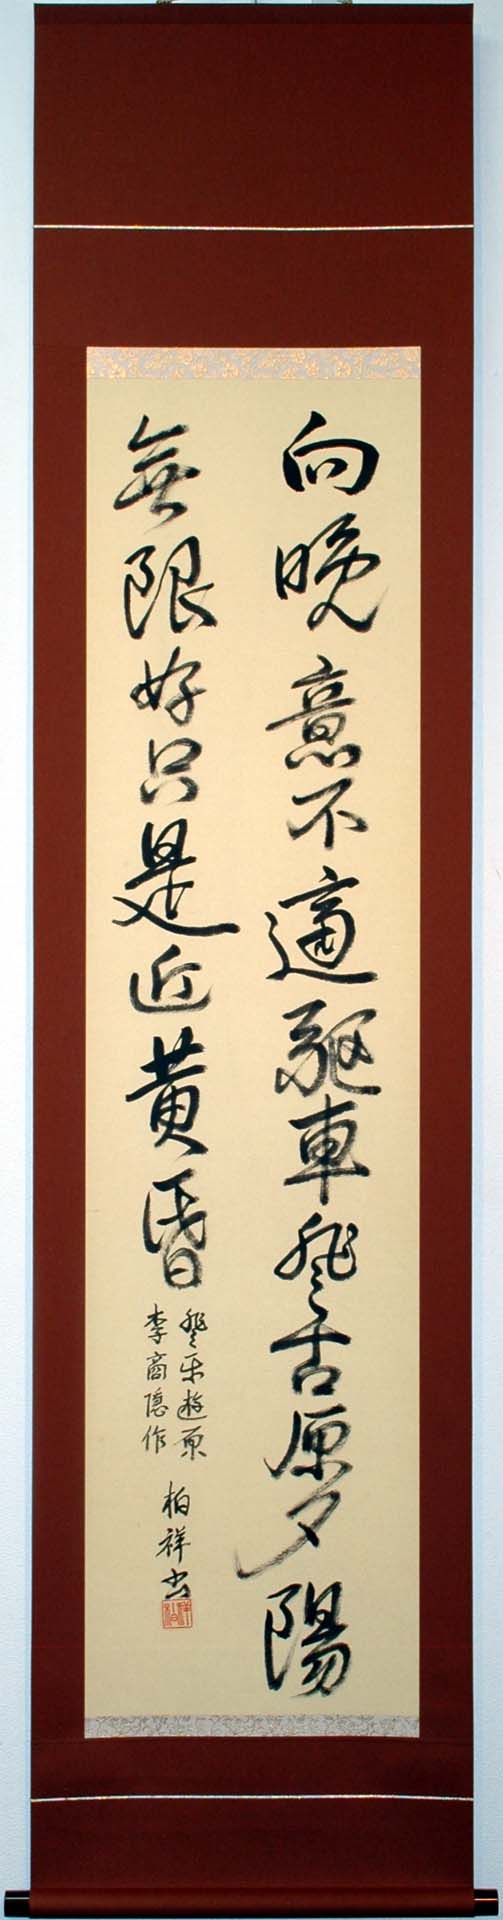 向晩意不適駆車登古原夕陽
無限好只是近黄昏
登楽遊原
李商隠作
柏祥書